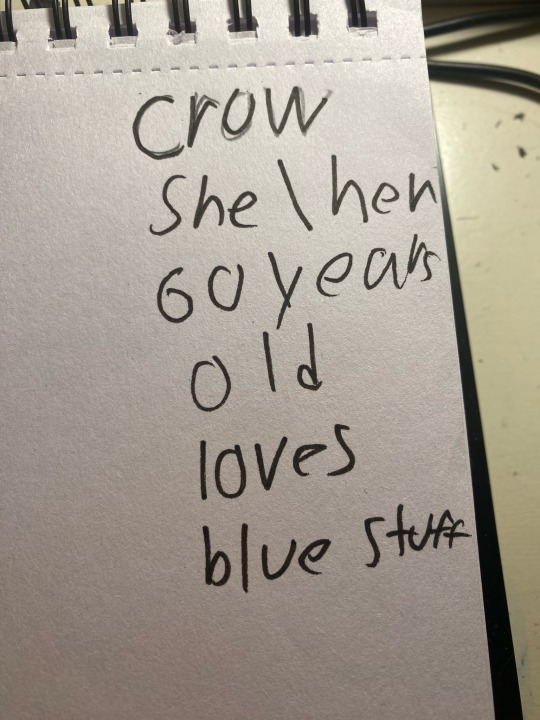 Crow
She\her
60 years
old
loves
blue stuff